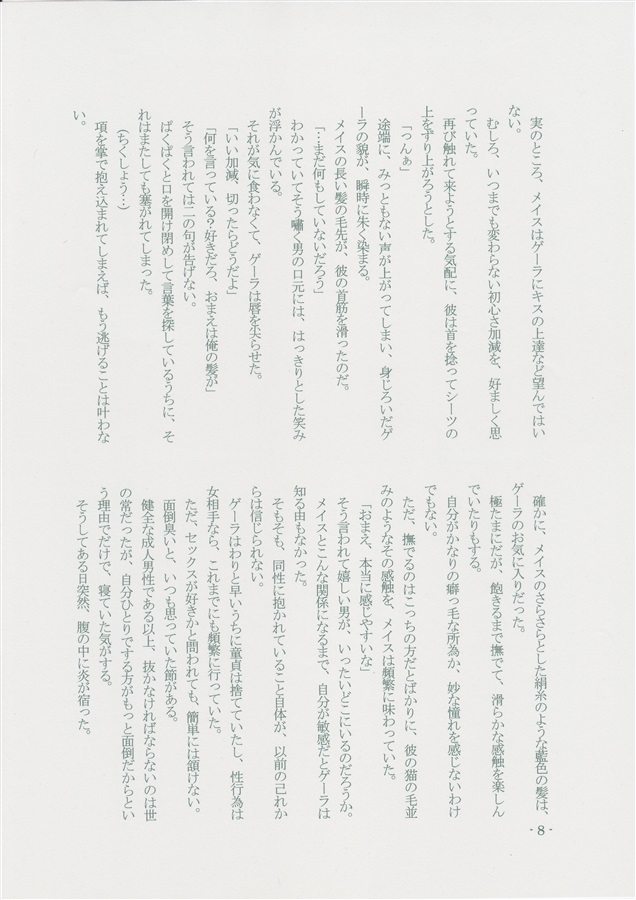 実のところ、メイスはゲーラにキスの上達など望んではい
ない。
むしろ、いつまでも変わらない初心さ加減を、好ましく思
っていた。
再び触れて来ようとする気配に、彼は首を捻ってシーツの
上をずり上がろうとした。
「っんぁ」
途端に、みっともない声が上がってしまい、身じろいだゲ
ーラの貌が、瞬時に朱く染まる。
メイスの長い髪の毛先が、彼の首筋を滑ったのだ。
「…まだ何もしていないだろう」
わかっていてそう嘯く男の口元には、はっきりとした笑み
が浮かんでいる。
それが気に食わなくて、ゲーラは唇を尖らせた。
「いい加減、切ったらどうだよ」
「何を言っている？好きだろ、おまえは俺の髪が」
そう言われては二の句が告げない。
ぱくぱくと口を開け閉めして言葉を探しているうちに、そ
れはまたしても塞がれてしまった。
（ちくしょう…）
項を掌で抱え込まれてしまえば、もう逃げることは叶わな
い。
確かに、メイスのさらさらとした絹糸のような藍色の髪は、
ゲーラのお気に入りだった。
極たまにだが、飽きるまで撫でて、滑らかな感触を楽しん
でいたりもする。
自分がかなりの癖っ毛な所為か、妙な憧れを感じないわけ
でもない。
ただ、撫でるのはこっちの方だとばかりに、彼の猫の毛並
みのようなその感触を、メイスは頻繁に味わっていた。
「おまえ、本当に感じやすいな」
そう言われて嬉しい男が、いったいどこにいるのだろうか。
メイスとこんな関係になるまで、自分が敏感だとゲーラは
知る由もなかった。
そもそも、同性に抱かれていること自体が、以前の己れか
らは信じられない。
ゲーラはわりと早いうちに童貞は捨てていたし、性行為は
女相手なら、これまでにも頻繁に行っていた。
ただ、セックスが好きかと問われても、簡単には頷けない。
面倒臭いと、いつも思っていた節がある。
健全な成人男性である以上、抜かなければならないのは世
の常だったが、自分ひとりでする方がもっと面倒だからとい
う理由でだけで、寝ていた気がする。
そうしてある日突然、腹の中に炎が宿った。
- 8 -